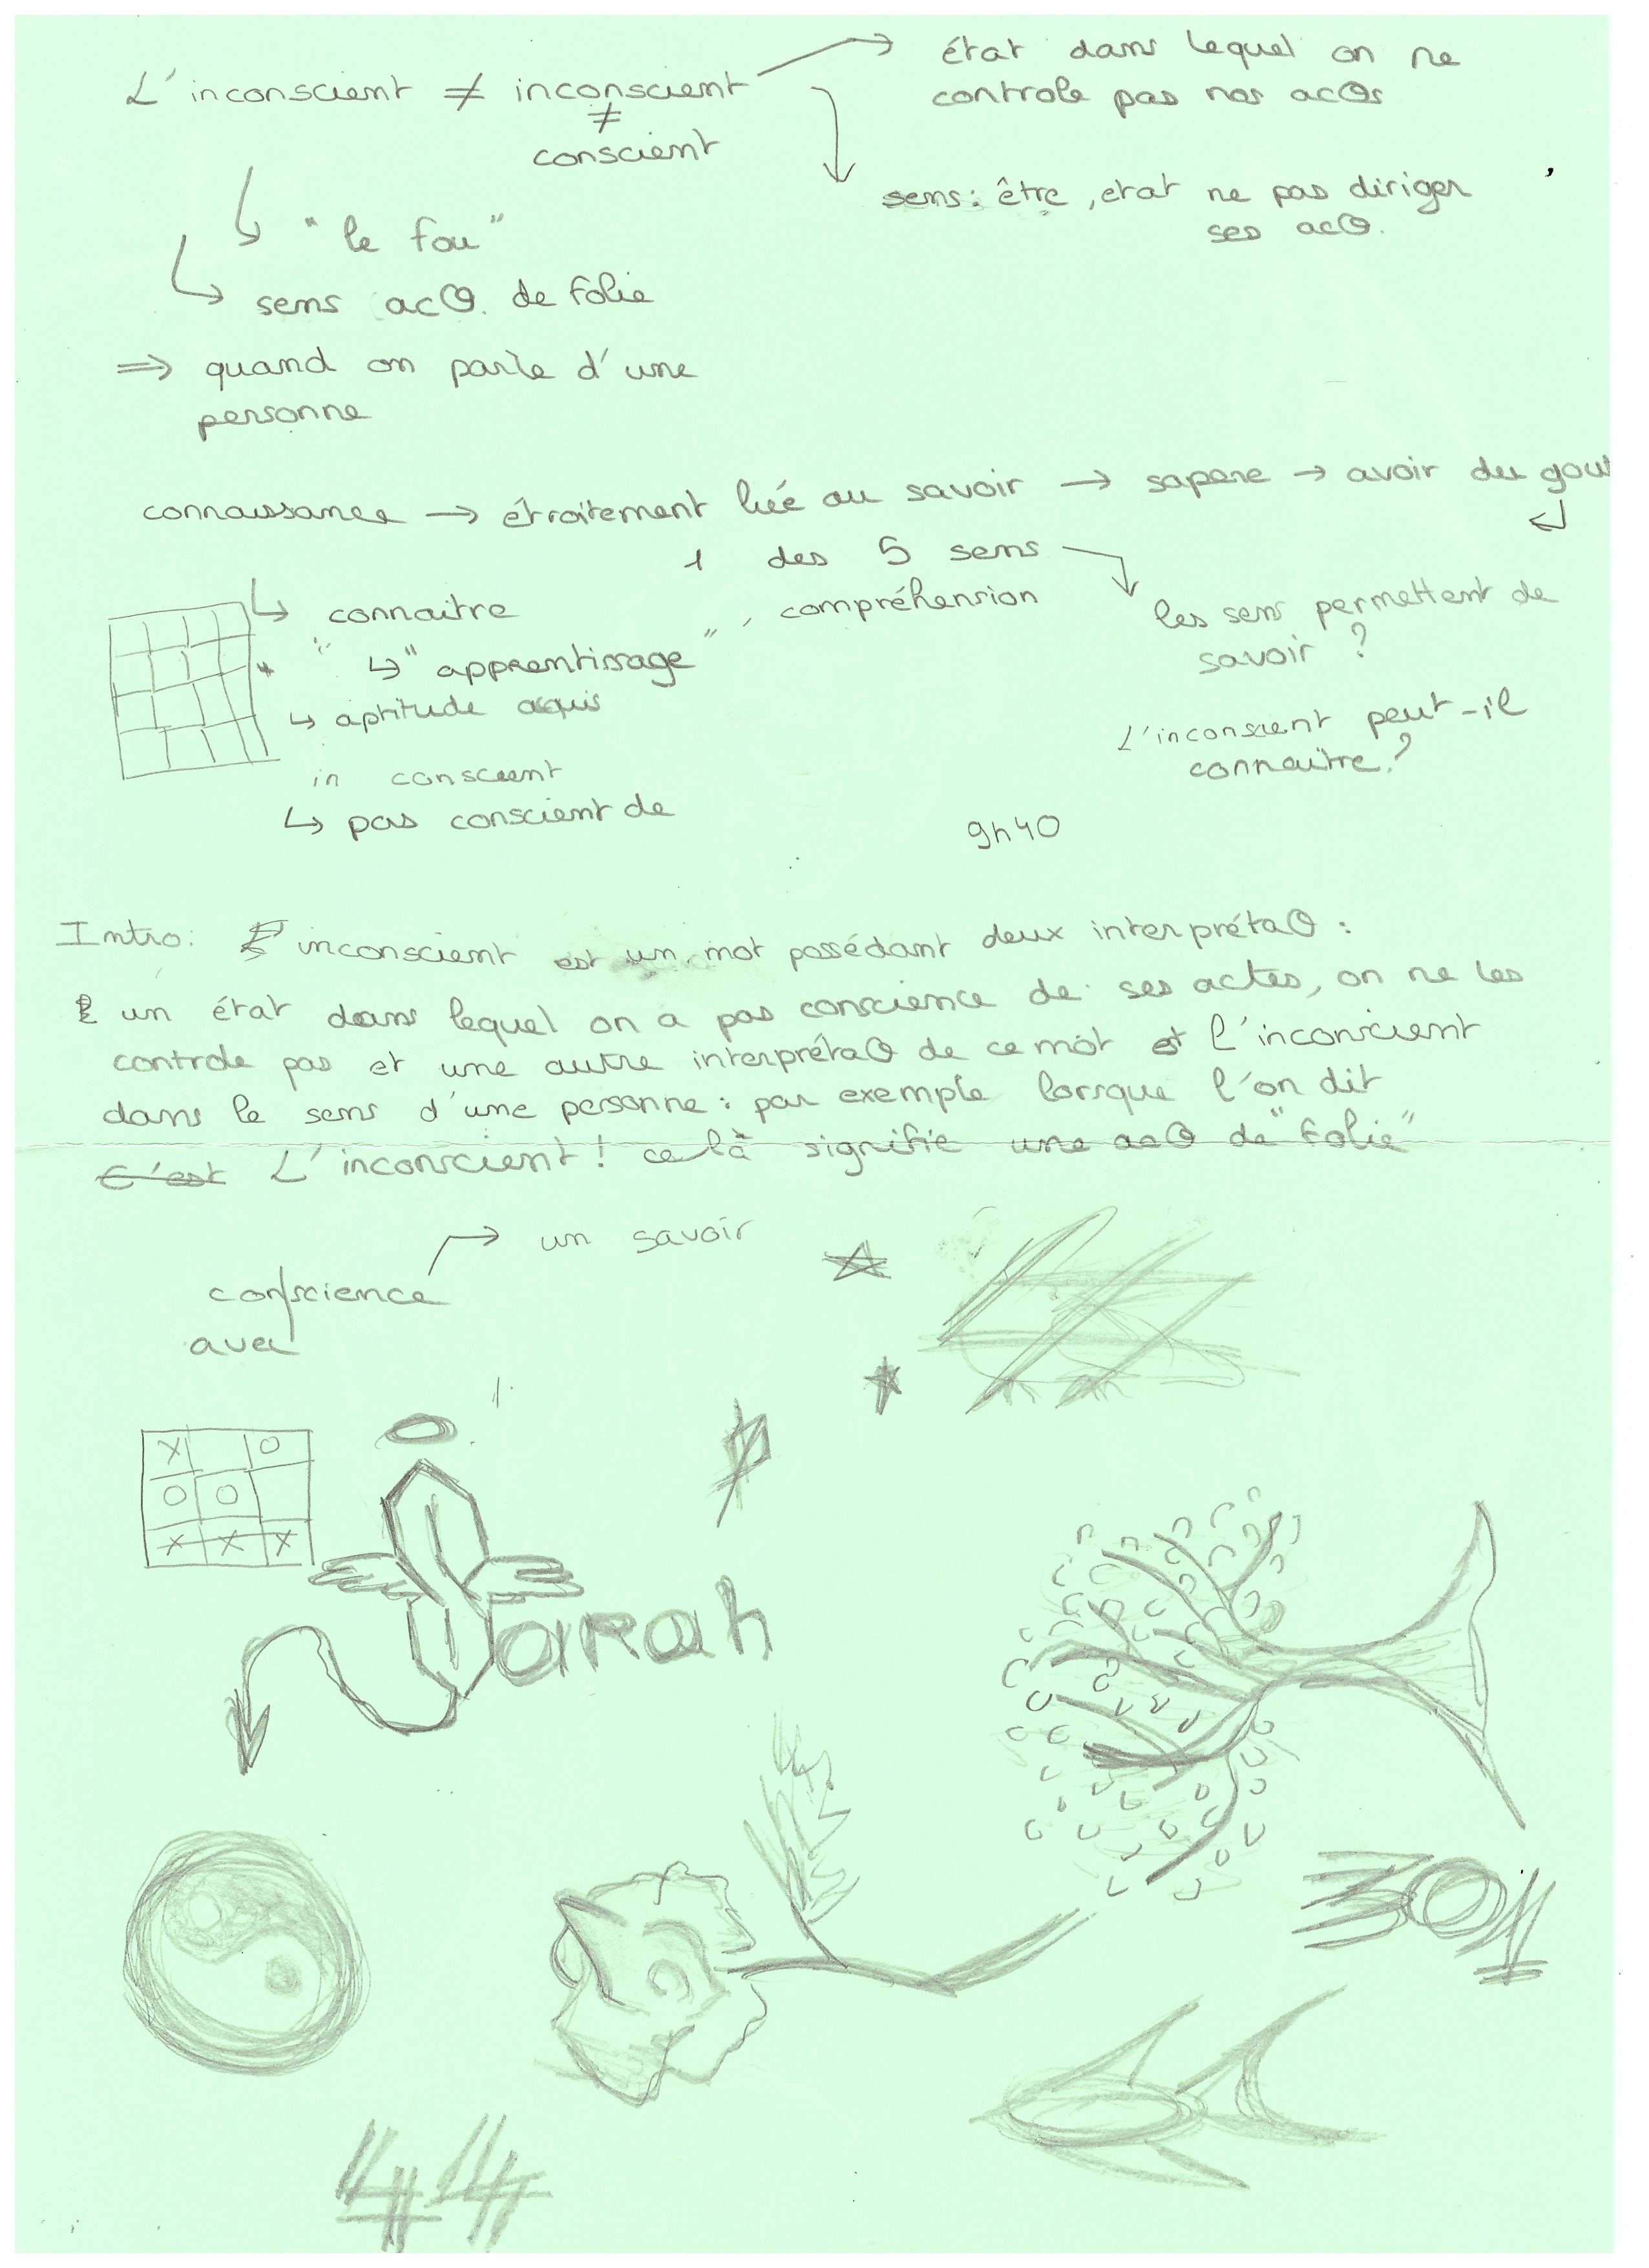 L'inconscient ≠ inconscient → état dans lequel on ne
controle pas nos acΘs
≠
conscient
sens: être, etat ne pas diriger
ses acΘ.
↳ "le fou"
↳ sens acΘ. de folie
⇒ quand on parle d'une
personne
connaissance → étroitement liée au savoir → sapere → avoir du gout
1 des 5 sens
↳ connaitre , compréhension
↳ "apprentissage"
↳ aptitude acquis
les sens permettent de
savoir ?
L'inconscient peut-il
connaitre ?
in conscient
↳ pas conscient de
9h40
Intro: inconscient est un mot possédant deux interprétaΘ :
un état dans lequel on a pas conscience de ses actes, on ne les
controle pas et une autre interprétaΘ de ce mot est l'inconscient
dans le sens d'une personne : par exemple lorsque l'on dit
C'est L'inconscient ! celà signifie une acΘ de "folie"
→ un savoir
con/science
avec
X O
O O
X X X
Sarah
3011
44